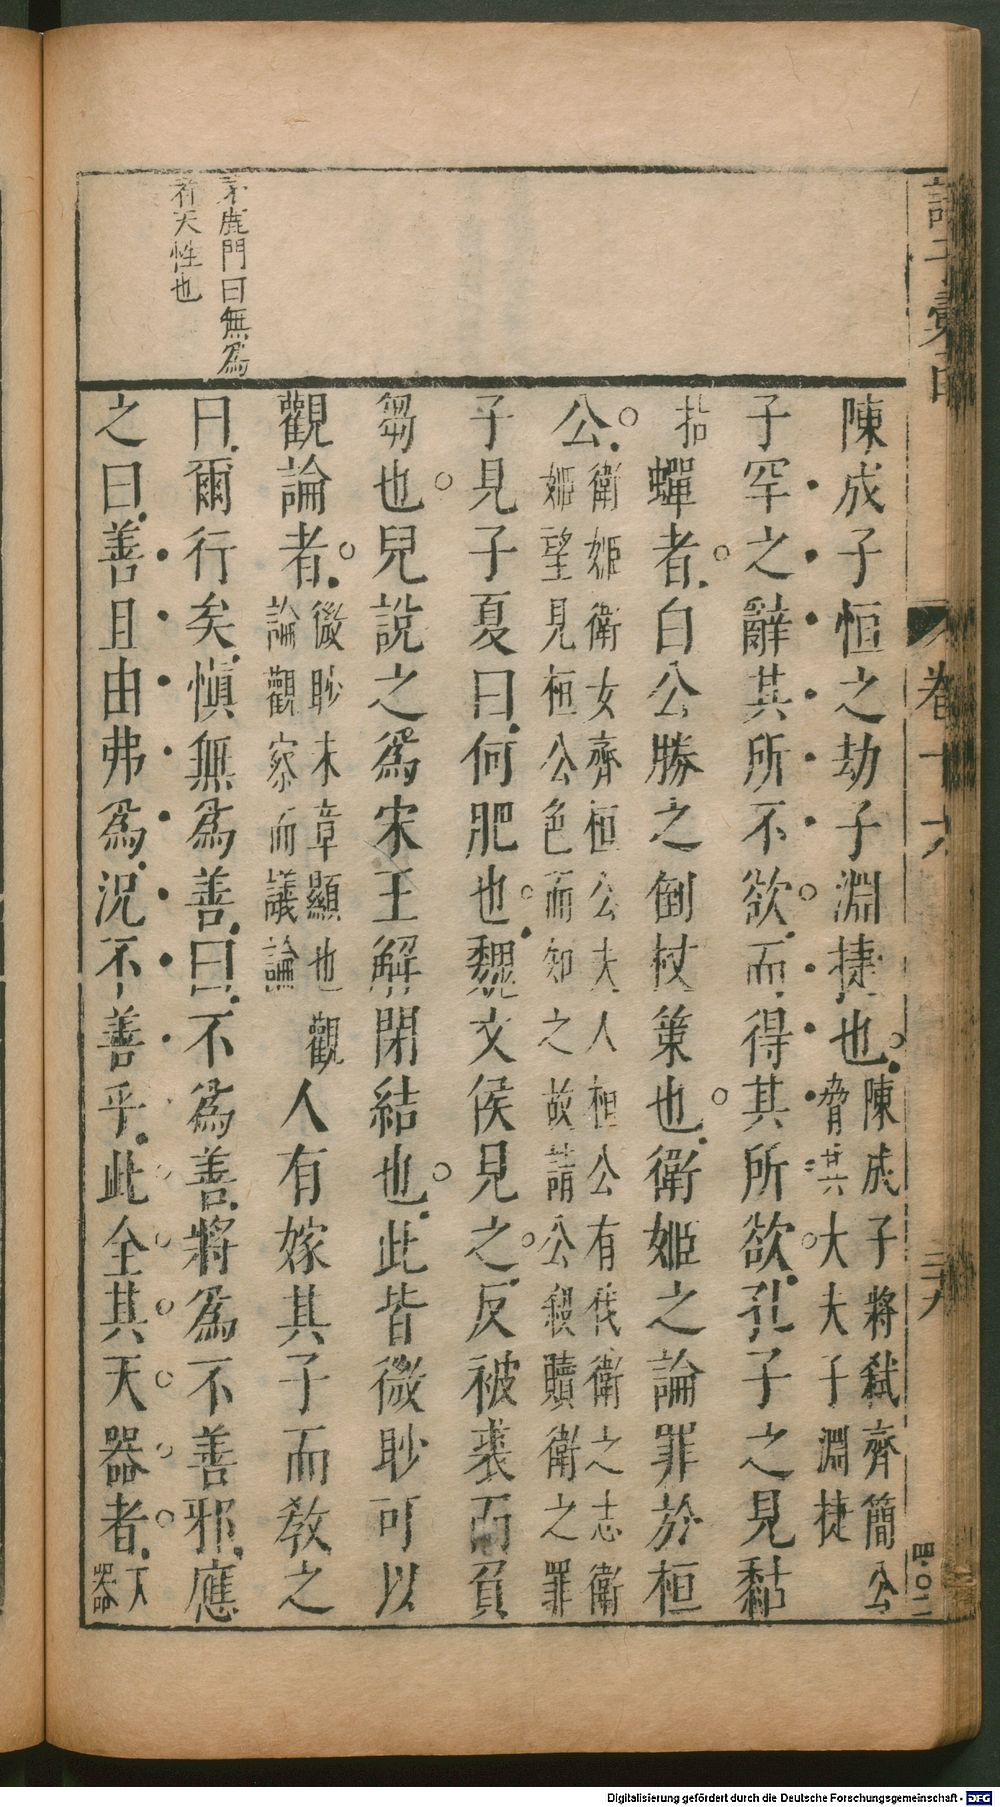 茅鹿門曰無爲
者天性也
陳成子恒之劫子淵捷也陳成子將弑齊簡公
脅其大夫子淵捷
子罕之辭其所不欲而得其所欲孔子之見黏
蟬者白公勝之倒杖策也衛姬之論罪於桓
公衛姬衛女齊桓公夫人桓公有伐衛之志衛
姬望見桓公色而知之故請公殺贖衛之罪
子見子夏曰何肥也魏文侯見之反被裘而負
芻也兒說之爲宋王解閉結也此皆微眇可以
觀論者微眇未章顯也
論觀察而議論
觀人有嫁其子而教之
曰爾行矣慎無爲善曰不爲善將爲不善邪應
之曰善且由弗爲況不善乎此全其天器者天
器
卷十六
四〇二
Digitalisierung gefördert durch die Deutsche Forschungsgemeinschaft - DFG